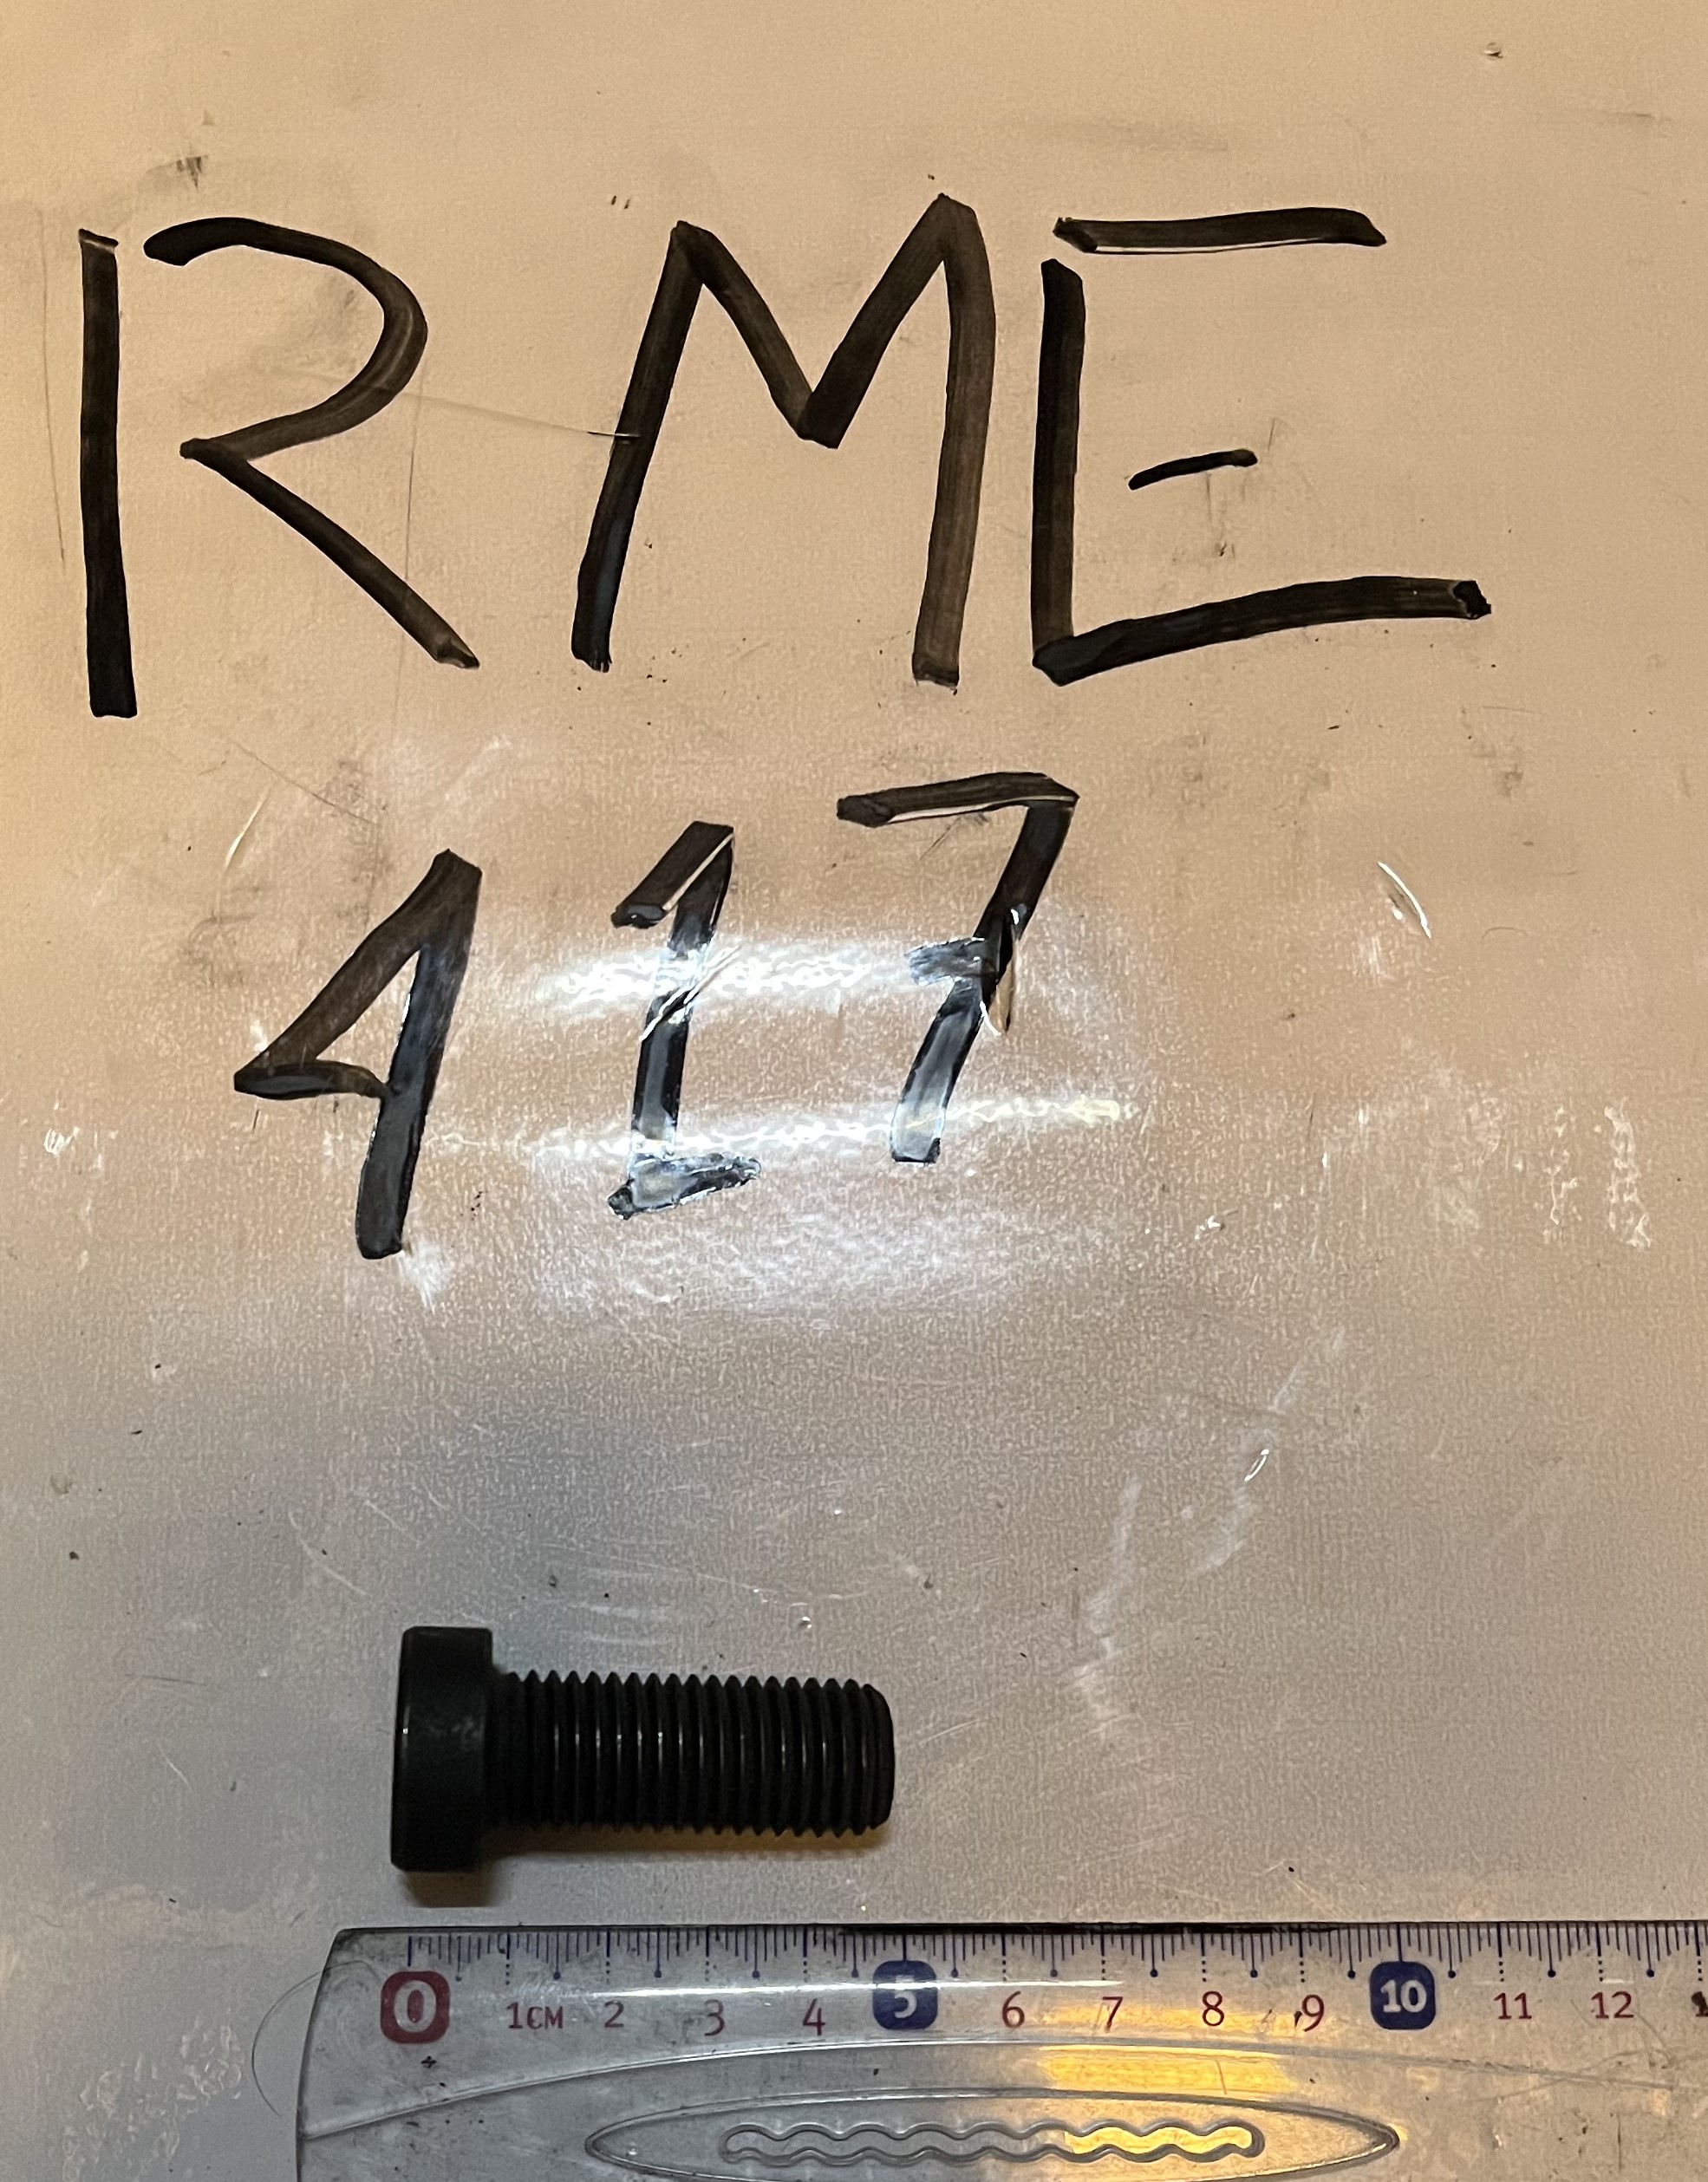 RME
417
0 1CM 2 3 4 5 6 7 8 9 10 11 12